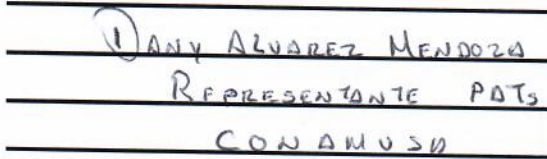 DANY ALVAREZ MENDOZA
REPRESENTANTE PATS
CONAMUSA